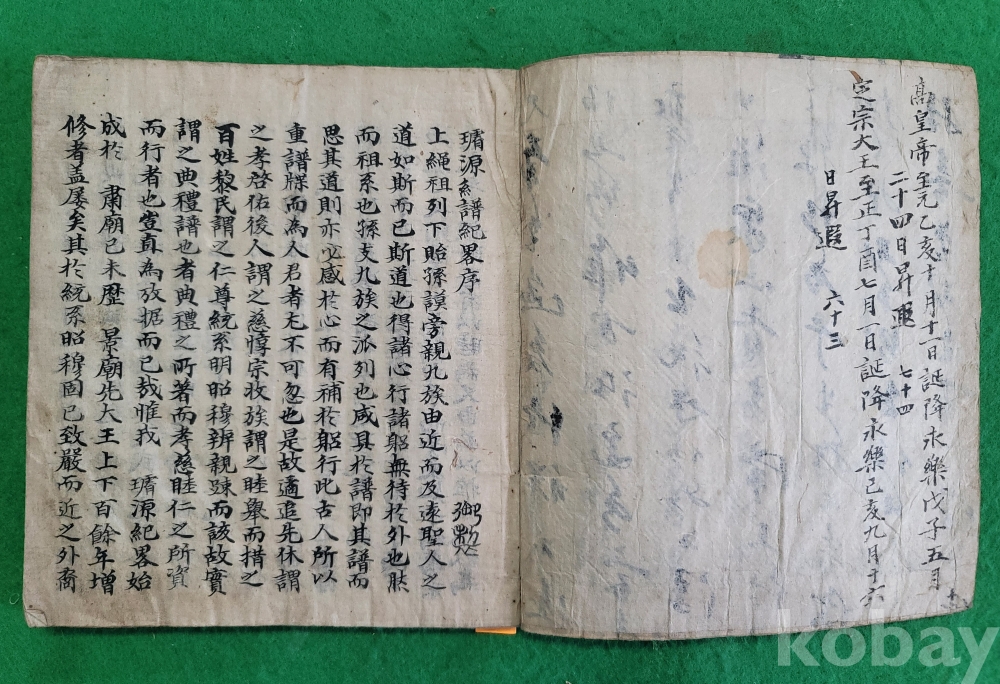 高皇帝至元乙亥十月十一日誕降永樂戊子五月
二十四日昇遐 七十四
定宗大王至正丁酉七月一日誕降永樂己亥九月十六
日昇遐 六十三
璿源系譜紀畧序
御製
上繩祖列下貽孫謨旁親九族由近而及遠聖人之
道如斯而已斯道也得諸心行諸躬無待於外也肰
而祖系也孫支九族之派列也咸具於譜即其譜而
思其道則亦必感於心而有補於躬行此古人所以
重譜牒而為人君者尤不可忽也是故遹追先休謂
之孝啓佑後人謂之慈惇宗收族謂之睦舉而措之
百姓黎民謂之仁尊統系明昭穆辨親踈而該故實
謂之典禮譜也者典禮之所著而孝慈睦仁之所資
而行者也豈直為放据而已哉惟我 璿源紀畧始
成於 肅廟己未歷 景廟先大王上下百餘年增
修者盖屢矣其於統系昭穆固已致嚴而近之外裔
kobay